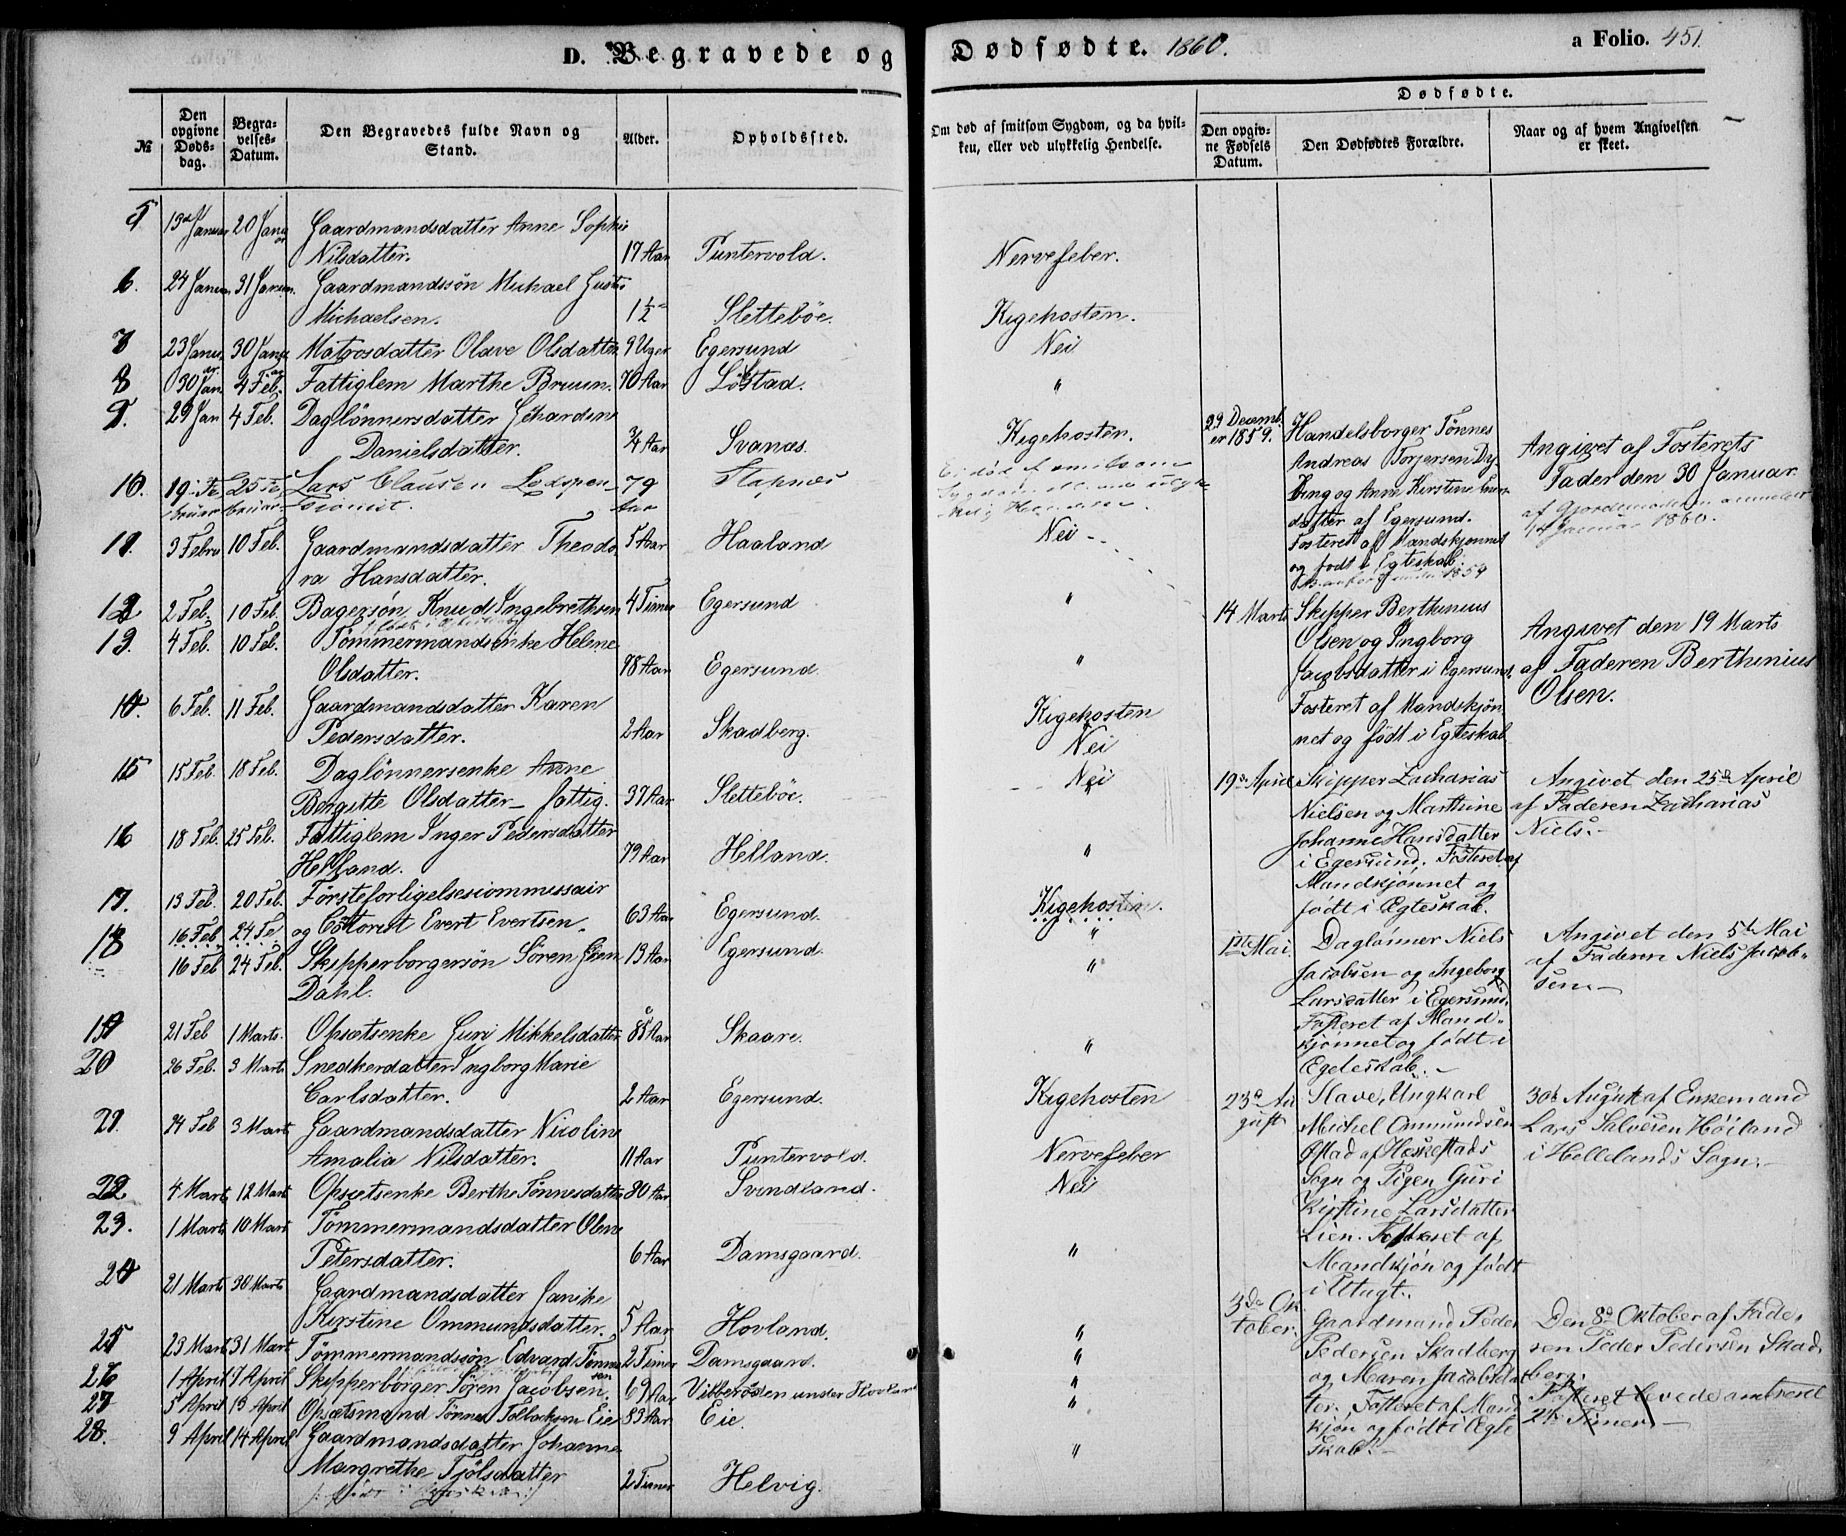 D. Begravede og Dødfødte. 1860.
a Folio. 451.
№
Den opgivne Dødsdag.
Begravelses-Datum.
Den Begravedes fulde Navn og Stand.
Alder.
Opholdssted.
Om død af smitsom Sygdom, og da hvilken, eller ved ulykkelig Hendelse.
Dødfødte.
Den opgivne Fødsels Datum.
Den Dødfødtes Forældre.
Naar og af hvem Angivelsen er skeet.
5 13de Januar 20 Januar Gaardmandsdatter Anne Sophie
Nilsdatter. 17 Aar Puntervold. Nervefeber.
6. 24 Januar 31 Januar. Gaardmandssøn Michael Gustav
Michaelsen. 1½ Slettebøe. Kigehosten.
7 23 Januar 30 Januar Matrosdatter Olave Olsdatter 9 Uger Egersund Nei
8 30 Jan 4 Feb. Fattiglem Marthe Bruun. 70 Aar Løstad. "
9. 29 Jan 4 Feb. Daglønnersdatter Gehardine
Danielsdatter. ¾ Aar Svanæs. Kigehosten.
10. 19 Februar 25 Februar Lars Clausen
79 Aar Stapnæs
11 3 Februar 10 Feb. Gaardmandsdatter Theodo
ra Hansdatter. 5 Aar Haaland Nei
12 2 Feb. 10 Feb. Bagersøn Knud Ingebrethsen 4 Timer Egersund "
13. 4 Feb. 10 Feb. Tømmermandsenke Helene
Olsdatter. 78 Aar Egersund. "
14. 6 Feb. 11 Feb. Gaardmandsdatter Karen
Pedersdatter. 2 Aar Skadberg. Kigehosten
Nei
15 15 Feb. 18 Feb. Daglønnersenke Anne
Bergitte Olsdatter fattig. 37 Aar Slettebøe. Nei
16 18 Feb. 25 Feb. Fattiglem Inger Pedersdatter
Helland. 79 Aar Helland. "
17. 13 Feb. 20 Feb. Førsteforligelsescommissair
16 Feb 24 Fe og Evert Evertsen. 63 Aar Egersund. Kigehosten.
18 16 Feb 24 Feb. Skipperborgersøn Sören
Dahl. 13 Aar Egersund. "
19 21 Feb 1 Marts. Opsætsenke Guri Mikkelsdatter 85 Aar Skaare. "
20 26 Feb. 3 Marts Snedkerdatter Ingborg Marie
Carlsdatter. 2 Aar Egersund. Kigehosten
21. 24 Feb 3 Mart Gaardmandsdatter Nicoline
Amalia Nilsdatter. 11 Aar Puntervold. Nervefeber
22 4 Mart 12 Mart Opsætsenke Berthe Tönnesdatter 80 Aar Svindland. Nei
23. 1 Mart 10 Mart Tømmermandsdatter Olene
Petersdatter. 6 Aar Damsgaard. "
24 21 Marts 30 Marts Gaardmandsdatter Janike
Kirstine Ommundsdatter. 5 Aar Hovland. "
25 23 Mart 31 Mart Tømmermandssøn Edvard Tønnessen 2 Timer Damsgaard. "
26 1 April 7 April Skipperborger Sören Jacobsen. 69 Aar Vibberosten under Hovland "
27 5 April 13 April Opsætsmand Tønnes Tollacksen Eie 83 Aar Eie. "
28. 9 April 14 April Gaardmandsdatter Johanne
Margrethe Tjölsdatter 2 Timer Helvig. "
29 December 1859. Handelsborger Tønnes
Andreas Torjersen Dy
ving og Anne Kirstine
datter af Egersund.
Fosteret af Mandskjønnet
og født i Egteskab
Angivet af Fosterets
Fader den 30 Januar.
Januar 1860.
14 Marts Skipper Berthinius
Olsen og Ingborg
Jacobsdatter i Egersund.
Fosteret af Mandskjøn
net og født i Egteskab
Angivet den 19 Marts
af Faderen Berthinius
Olsen.
19de April Skipper Zacharias
Nielsen og Marthine
Johanne Hansdatter
i Egersund. Fosteret af
Mandskjønnet og
født i Ægteskab.
Angivet den 25de April
af Faderen Zacharias
Niels.
1ste Mai. Daglønner Niels
Jacobsen og Ingeborg
Larsdatter i Egersund.
Fosteret af Mand-
kjønnet og født i
Egteskab.
Angivet den 5te Mai
af Faderen Niels Jacob-
sen.
23de August Slave, Ungkarl
Michel Ommundsen
Østad af Heskestads
Sogn og Pigen Guri
Kirstine Larsdatter
Lien. Fosteret af
Mandkjøn og født
i Utugt.
30te August af Enkemand
Lars Salvesen Høiland
i Hellelands Sogn.
3de Oktober. Gaardmand Peder
Pedersen Skadberg
og Maren Jacobsdat
ter. Fosteret af Mand
kjøn og født i Ægte
skab.
Den 8de Oktober af Fade-
ren Peder Pedersen Skad
berg.
Fosteret levede omtrent
2½ Timer